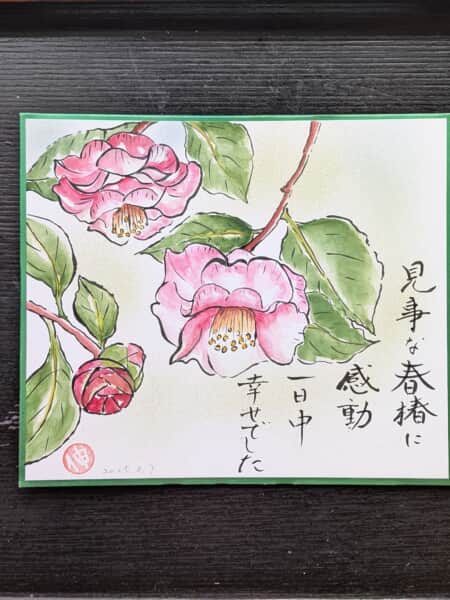 見事な春椿に
感動
一日中
幸せでした